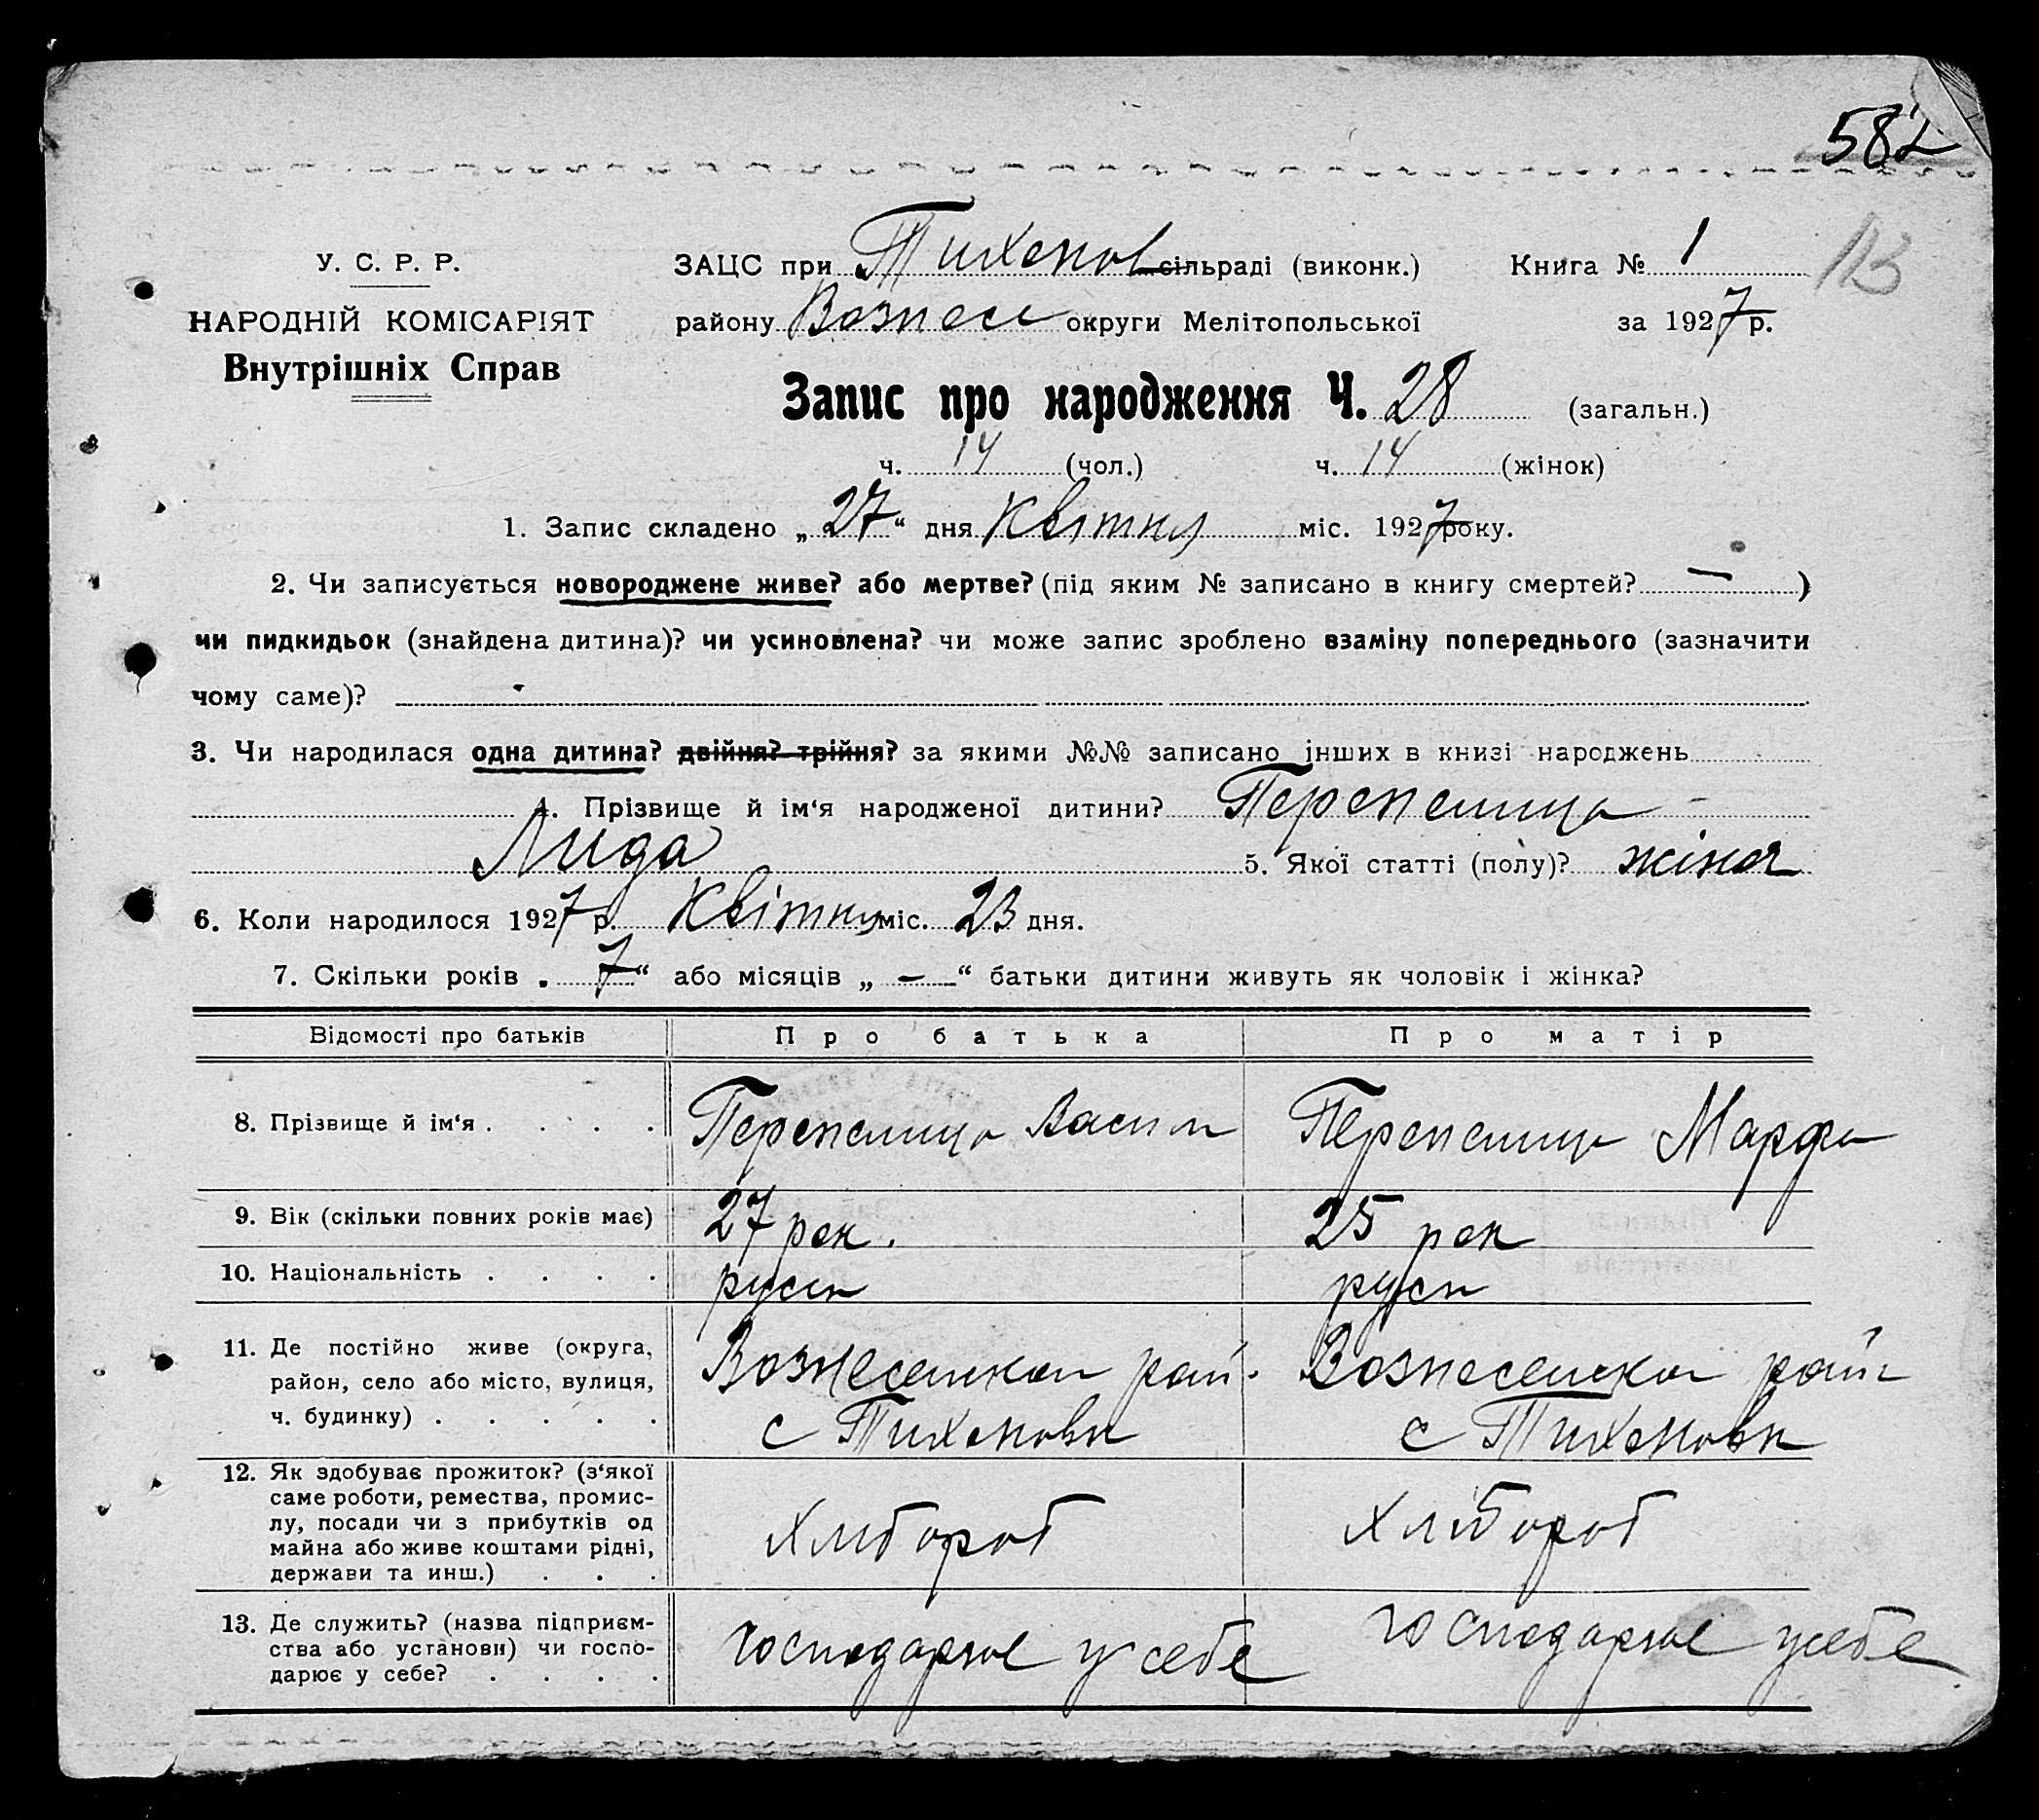 582
У. С. Р. Р.
НАРОДНІЙ КОМІСАРІЯТ
Внутрішніх Справ
ЗАЦС при Тихонов сільраді (виконк.) Книга № 1
району Вознесе округи Мелітопольської за 1927 р.
Запис про народження Ч. 28 (загальн.)
ч. 14 (чол.) ч. 14 (жінок)
1. Запис складено „27“ дня Квітня міс. 1927 року.
2. Чи записується новороджене живе? або мертве? (під яким № записано в книгу смертей? — )
чи пидкидьок (знайдена дитина)? чи усиновлена? чи може запис зроблено взаміну попереднього (зазначити
чому саме)?
3. Чи народилася одна дитина? двійня? трійня? за якими №№ записано інших в книзі народжень
4. Прізвище й ім‘я народженої дитини? Перепелица
Лида 5. Якої статті (полу)? жіноч
6. Коли народилося 1927 р. Квітня міс. 23 дня.
7. Скільки років „7“ або місяців „—“ батьки дитини живуть як чоловік і жінка?
Відомості про батьків Про батька Про матір
8. Прізвище й ім‘я . . . . Перепелица Васил Перепелица Марфа
9. Вік (скільки повних років має) 27 рок. 25 рок
10. Національність . . . . руск руск
11. Де постійно живе (округа,
район, село або місто, вулиця,
ч. будинку) . . . . .
Вознесенкой рай. Вознесенкой рай
с Тихоновк с Тихоновк
12. Як здобуває прожиток? (з‘якої
саме роботи, ремества, промис-
лу, посади чи з прибутків од
майна або живе коштами рідні,
держави та инш.) . . .
Хлібороб Хлібороб
13. Де служить? (назва підприєм-
ства або установи) чи госпо-
дарює у себе? . . . .
господарює у себе господарює у себе